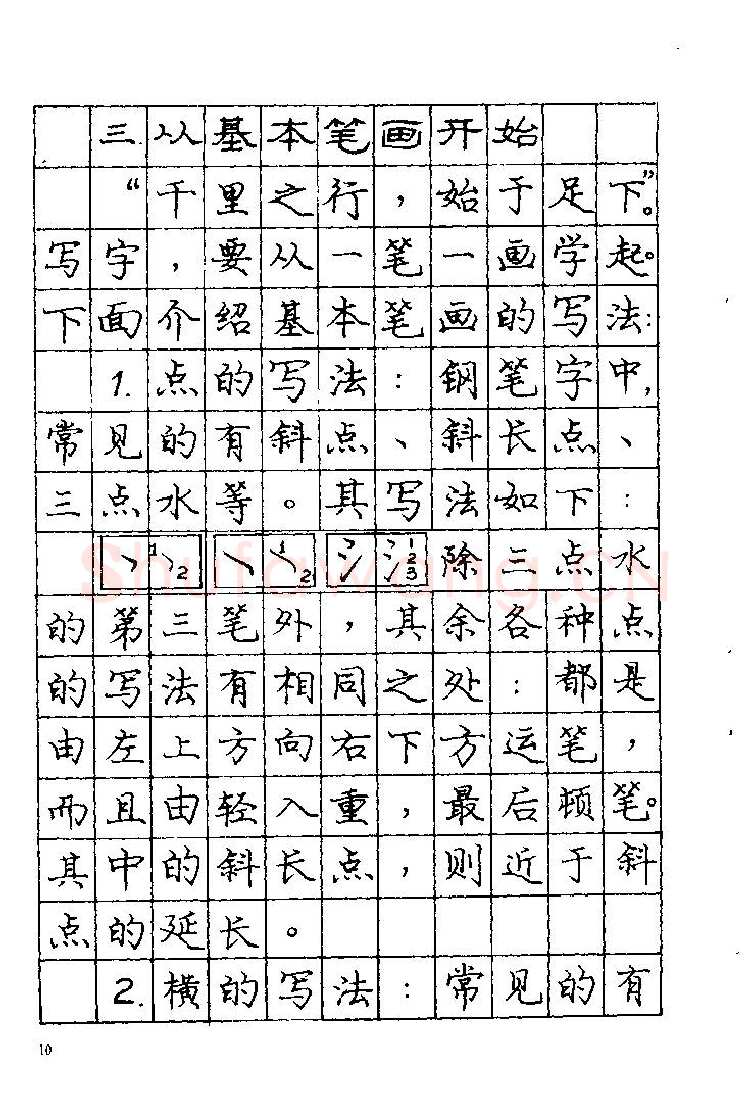 三.从基本笔画开始
“千里之行，始于足下”。
写字，要从一笔一画学起。
下面介绍基本笔画的写法：
1.点的写法：钢笔字中，
常见的有斜点、斜长点、
三点水等。其写法如下：
1 2 1 2 氵 1 2 3 除三点水
的第三笔外，其余各种点
的写法有相同之处：都是
由左上方向右下方运笔，
而且由轻入重，最后顿笔。
其中的斜长点，则近于斜
点的延长。
2.横的写法：常见的有
10
Shufawang.CN